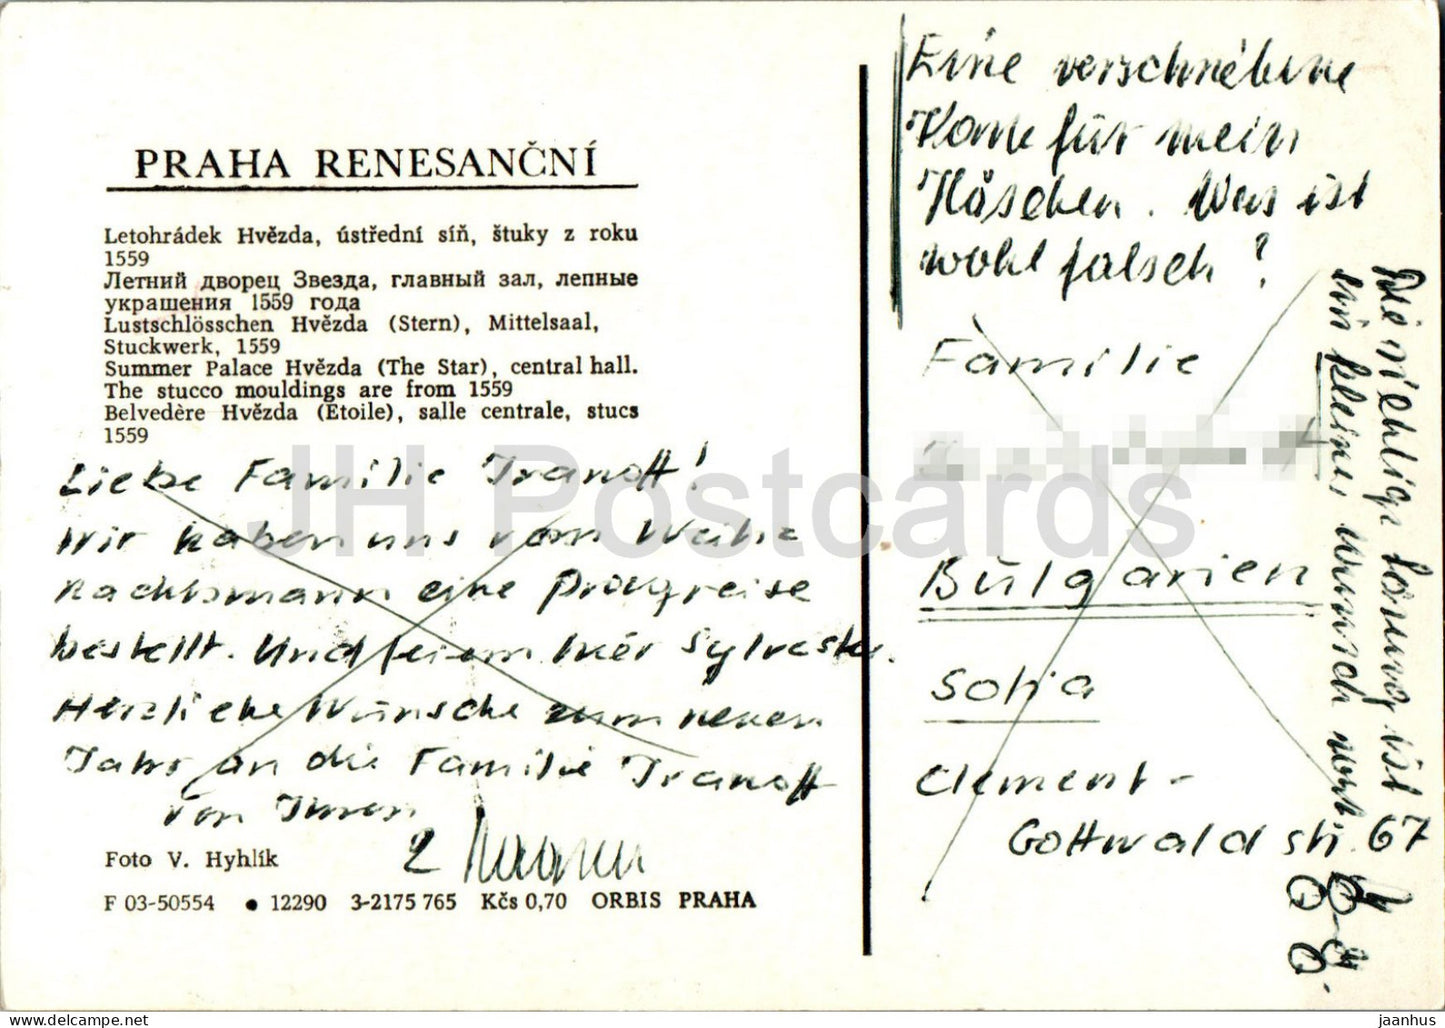 PRAHA RENESANČNÍ
Letohrádek Hvězda, ústřední síň, štuky z roku
1559
Летний дворец Звезда, главный зал, лепные
украшения 1559 года
Lustschlösschen Hvězda (Stern), Mittelsaal,
Stuckwerk, 1559
Summer Palace Hvězda (The Star), central hall.
The stucco mouldings are from 1559
Belvedère Hvězda (Etoile), salle centrale, stucs
1559
Liebe Familie Ivanoff!
Wir haben uns vom Weih=
nachtsmann eine Pragreise
bestellt. Und feiern hier Sylvester.
Herzliche Wünsche zum neuen
Jahr an die Familie Ivanoff
von Ihren
Foto V. Hyhlík
F 03-50554 • 12290 3-2175 765 Kčs 0,70 ORBIS PRAHA
Eine verschriebene
Karte für mein
Häschen. Was ist
wohl falsch?
Familie
Bulgarien
Sofia
Clement-
Gottwald str. 67
Die richtige Lösung ist
ein kleiner Wunsch wert.
JH Postcards
jaanhus